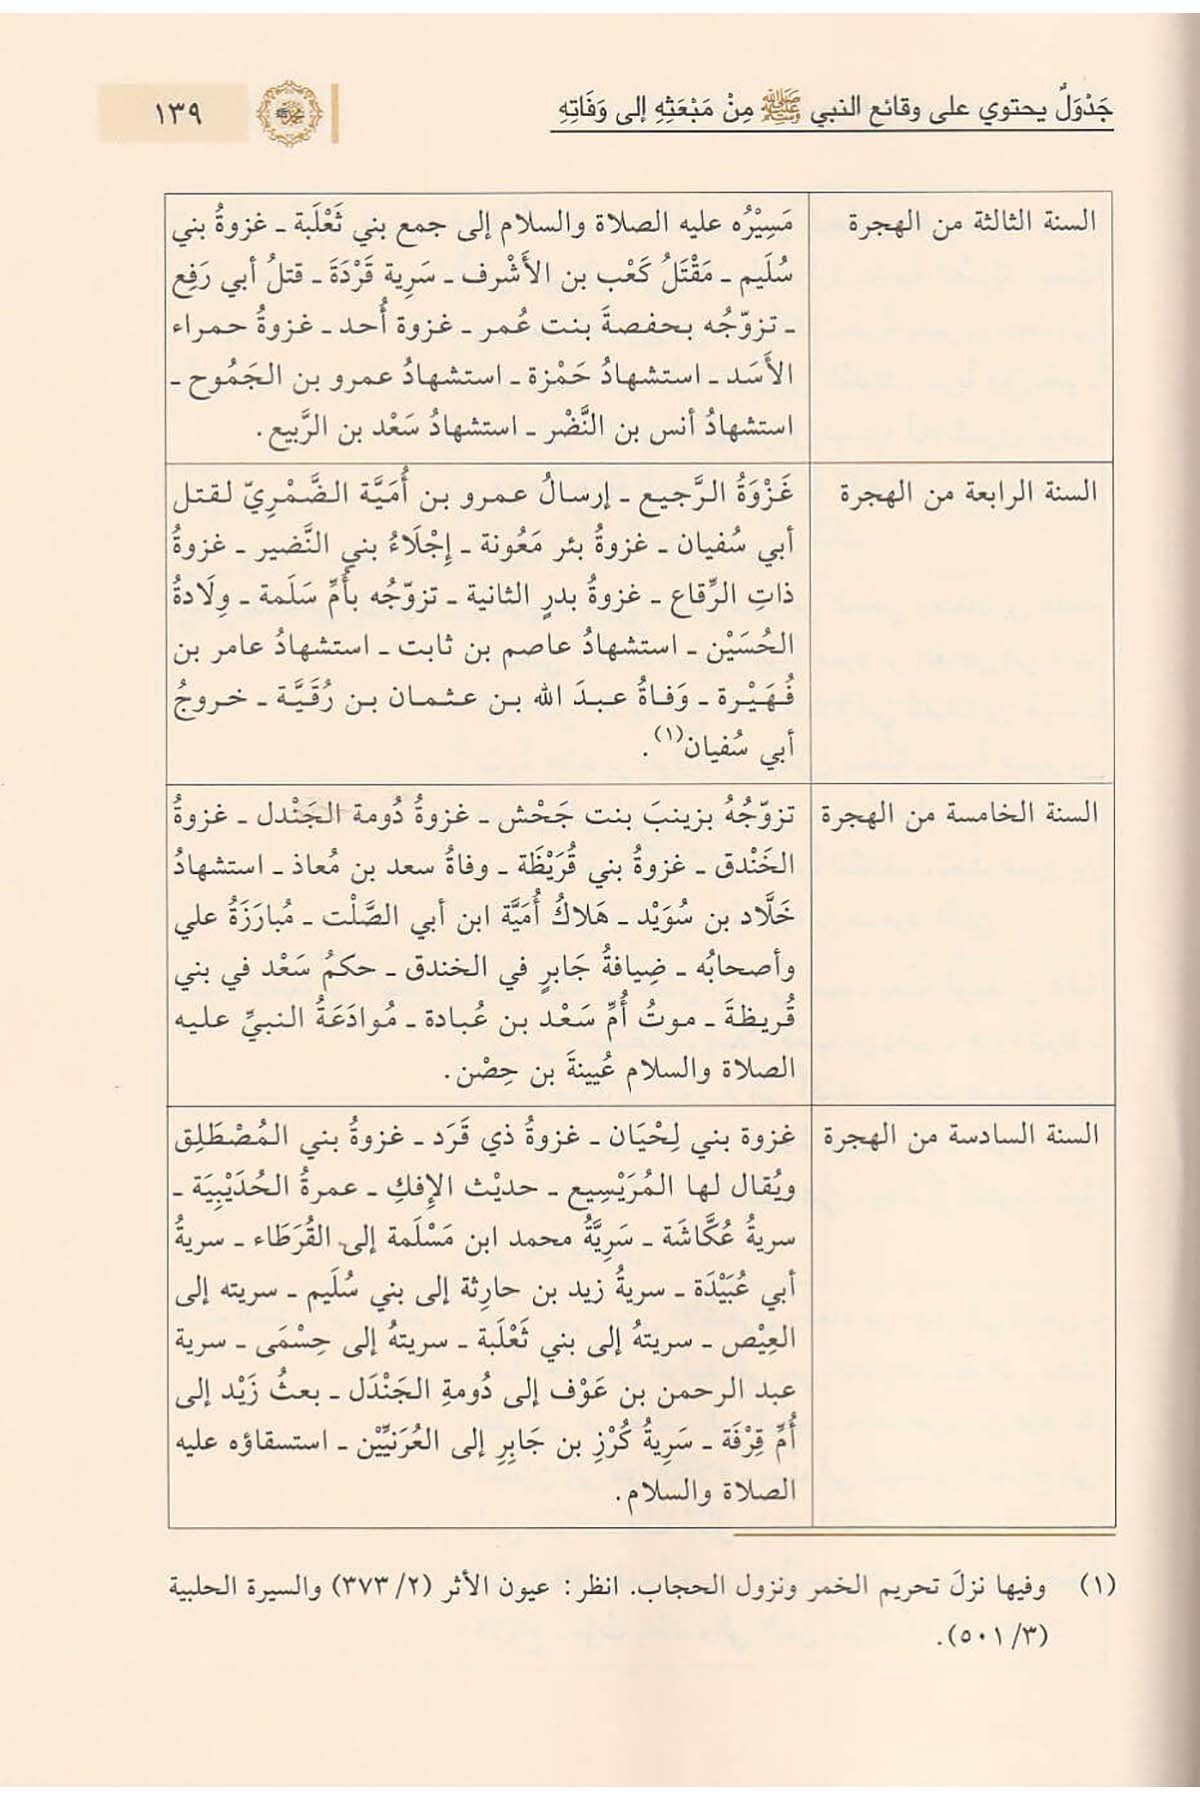 جَدْوَلٌ يحتوي على وقائع النبي ﷺ مِنْ مَبْعَثِهِ إلى وَفَاتِهِ
١٣٩
السنة الثالثة من الهجرة
مَسِيْرُه عليه الصلاة والسلام إلى جمع بني ثَعْلَبة ـ غزوةُ بني
سُلَيم ـ مَقْتَلُ كَعْب بن الأَشْرف ـ سَرِية قَرْدَةَ ـ قتلُ أبي رَفِع
ـ تزوّجُه بحفصةَ بنت عُمر ـ غزوة أُحد ـ غزوةُ حمراء
الأَسَد ـ استشهادُ حَمْزة ـ استشهادُ عمرو بن الجَمُوح ـ
استشهادُ أنس بن النَّضْر ـ استشهادُ سَعْد بن الرَّبيع.
السنة الرابعة من الهجرة
غَزْوَةُ الرَّجيع ـ إرسالُ عمرو بن أُمَيَّة الضَّمْرِيّ لقتل
أبي سُفيان ـ غزوةُ بئر مَعُونة ـ إِجْلَاءُ بني النَّضير ـ غزوةُ
ذاتِ الرِّقاع ـ غزوةُ بدرٍ الثانية ـ تزوّجُه بأُمِّ سَلَمة ـ وِلَادةُ
الحُسَيْن ـ استشهادُ عاصم بن ثابت ـ استشهادُ عامر بن
فُهَيْرة ـ وَفاةُ عبدَ الله بن عثمان بن رُقَيَّة ـ خروجُ
أبي سُفيان(١).
السنة الخامسة من الهجرة
تزوّجُهُ بزينبَ بنت جَحْش ـ غزوةُ دُومة الجَنْدل ـ غزوةُ
الخَنْدق ـ غزوةُ بني قُرَيْظَة ـ وفاةُ سعد بن مُعاذ ـ استشهادُ
خَلَّاد بن سُوَيْد ـ هَلاكُ أُمَيَّة ابن أبي الصَّلْت ـ مُبارَزَةُ علي
وأصحابُه ـ ضِيافةُ جَابرٍ في الخندق ـ حكمُ سَعْد في بني
قُريظةَ ـ موتُ أُمِّ سَعْد بن عُبادة ـ مُوادَعَةُ النبيِّ عليه
الصلاة والسلام عُيينةَ بن حِصْن.
السنة السادسة من الهجرة
غزوة بني لِحْيَان ـ غزوةُ ذي قَرَد ـ غزوةُ بني المُصْطَلِق
ويُقال لها المُرَيْسِيع ـ حديْث الإفكِ ـ عمرةُ الحُدَيْبِيَة ـ
سريةُ عُكَّاشَة ـ سَرِيَّةُ محمد ابن مَسْلَمة إلى القُرَطَاء ـ سريةُ
أبي عُبَيْدَة ـ سريةُ زيد بن حارِثة إلى بني سُلَيم ـ سريته إلى
العِيْص ـ سريتهُ إلى بني ثَعْلَبة ـ سريتهُ إلى حِسْمَى ـ سرية
عبد الرحمن بن عَوْف إلى دُومةِ الجَنْدَل ـ بعثُ زَيْد إلى
أُمِّ قِرْفَة ـ سَرِيةُ كُرْزِ بن جَابِرِ إلى العُرَنيِّيْن ـ استسقاؤه عليه
الصلاة والسلام.
(١) وفيها نزلَ تحريم الخمر ونزول الحجاب. انظر: عيون الأثر (٢/ ٣٧٣) والسيرة الحلبية
(٣/ ٥٠١).